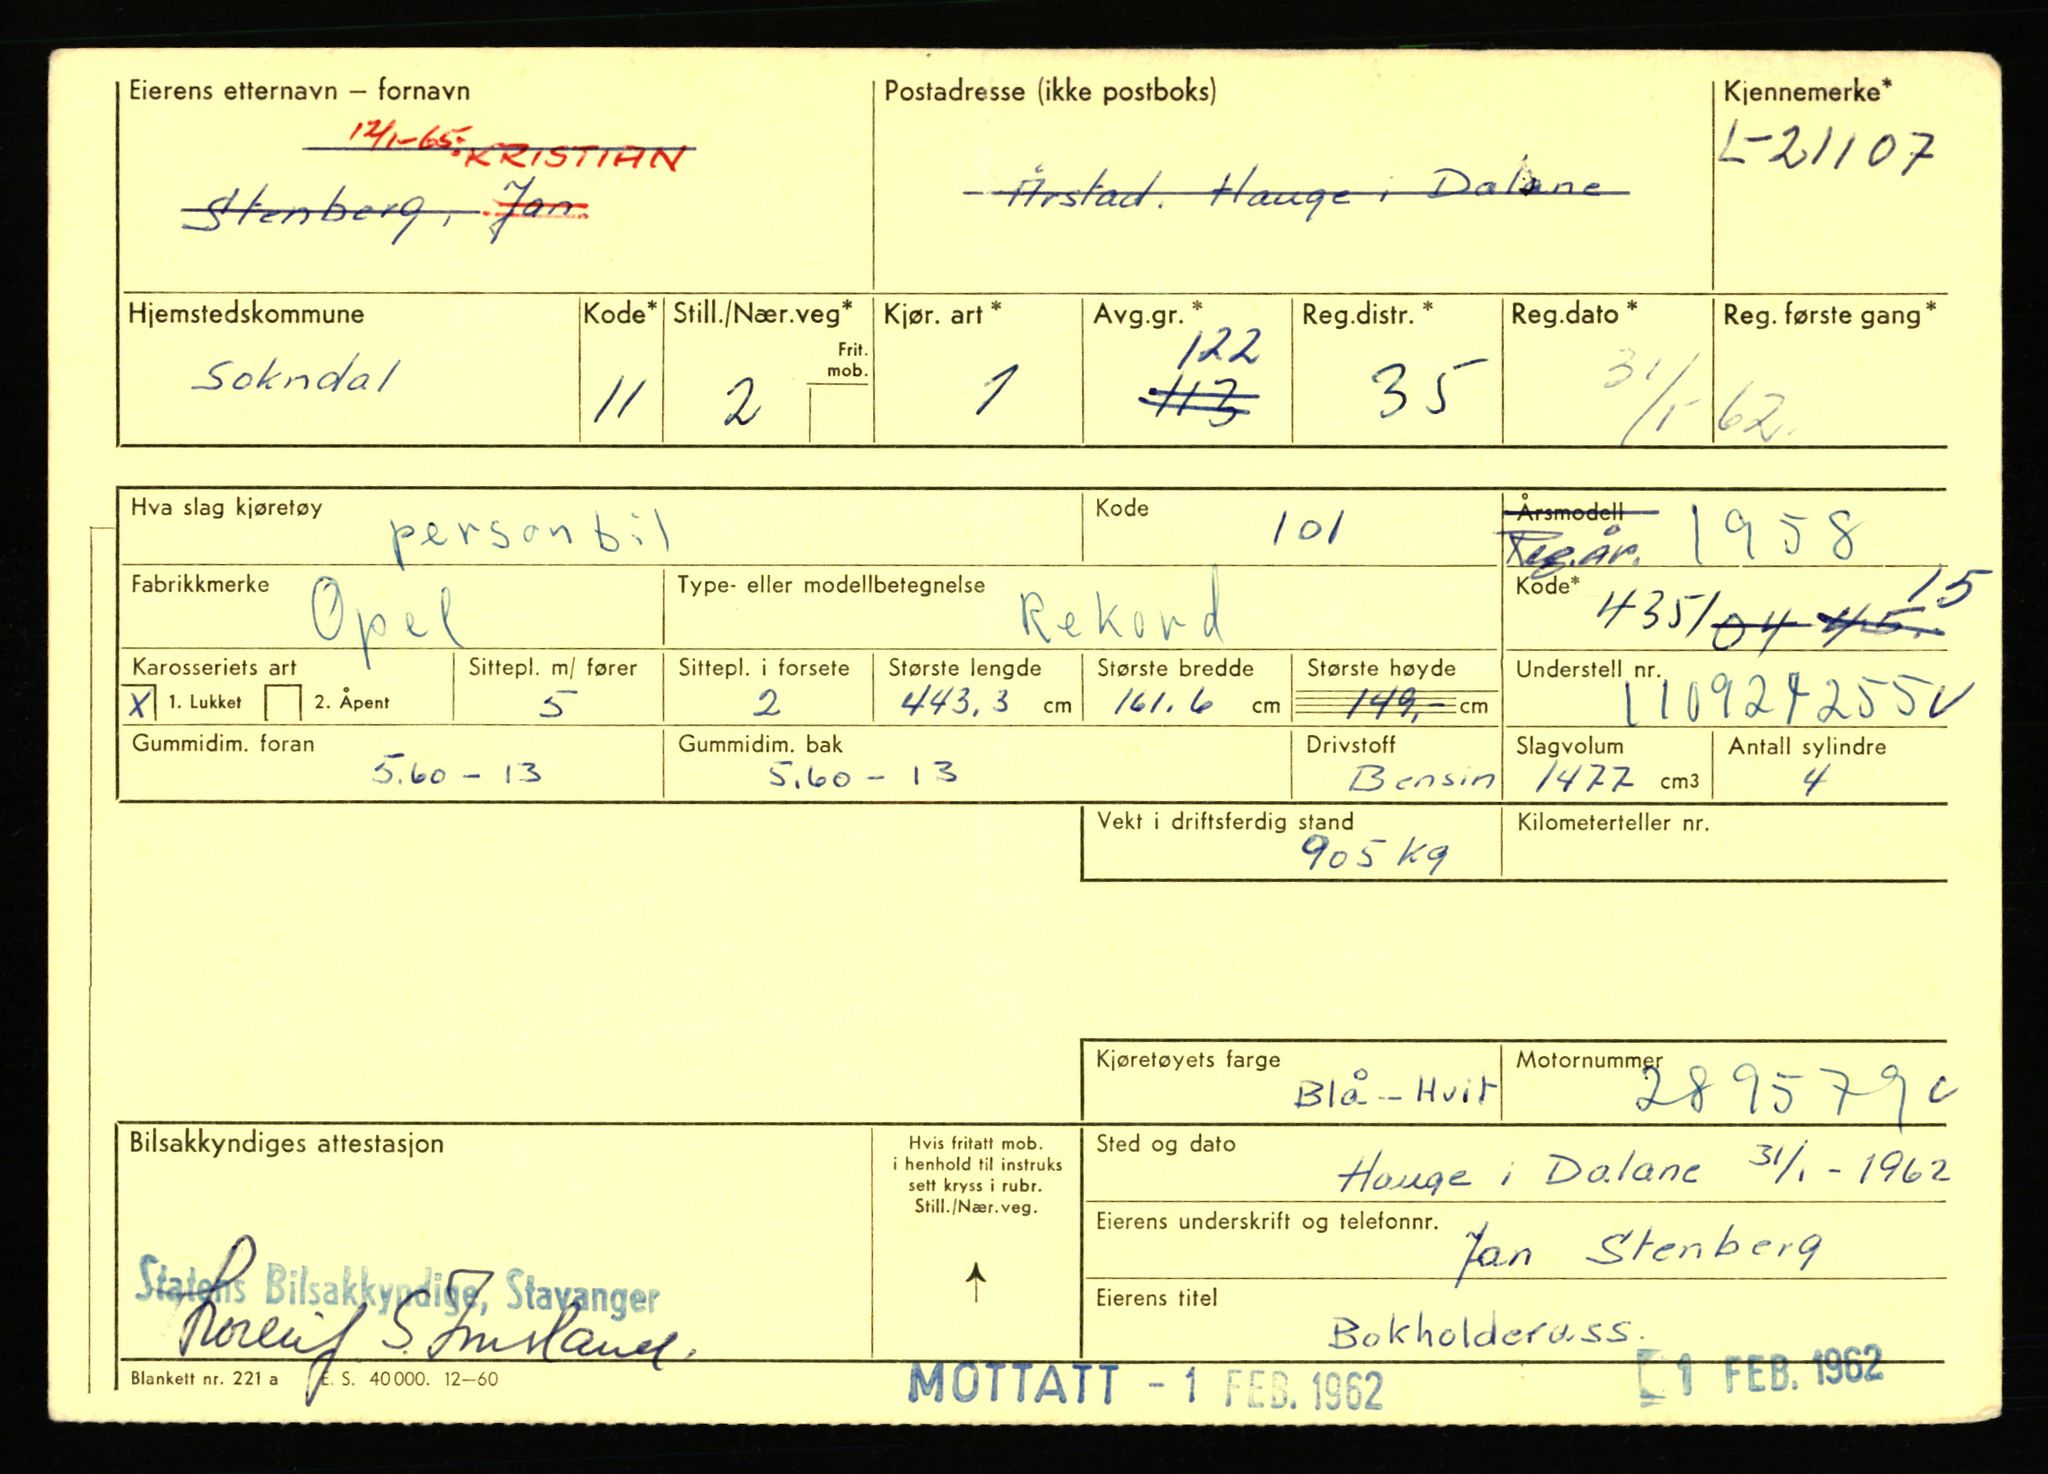 Eierens etternavn – fornavn
Postadresse (ikke postboks)
Kjennemerke*
12/1-65: KRISTIAN
L-21107
Stenberg, Jan
Årstad. Hauge i Dalane
Hjemstedskommune
Kode*
Still./Nær.veg*
Kjør. art*
Avg.gr.*
Reg.distr.*
Reg.dato*
Reg. første gang*
Frit. mob.
122
Sokndal
11
2
1
113
35
31/1-62.
Hva slag kjøretøy
personbil
Kode
101
Årsmodell
Reg.år.
1958
Fabrikkmerke
Opel
Type- eller modellbetegnelse
Rekord
Kode*
4351 04 45. 15
Karosseriets art
Sittepl. m/ fører
Sittepl. i forsete
Største lengde
Største bredde
Største høyde
Understell nr.
X 1. Lukket
2. Åpent
5
2
443,3 cm
161.6 cm
149,- cm
110924255 v
Gummidim. foran
Gummidim. bak
Drivstoff
Slagvolum
Antall sylindre
5.60 - 13
5.60 - 13
Bensin
1477 cm3
4
Vekt i driftsferdig stand
Kilometerteller nr.
905 kg
Kjøretøyets farge
Motornummer
Blå - Hvit
289579 v
Bilsakkyndiges attestasjon
Hvis fritatt mob.
i henhold til instruks
sett kryss i rubr.
Still./Nær.veg.
Sted og dato
Hauge i Dalane 31/1 - 1962
Eierens underskrift og telefonnr.
Jan Stenberg
Statens Bilsakkyndige, Stavanger
Eierens titel
Bokholderass.
Blankett nr. 221 a E. S. 40 000. 12–60
MOTTATT - 1 FEB. 1962
1 FEB. 1962